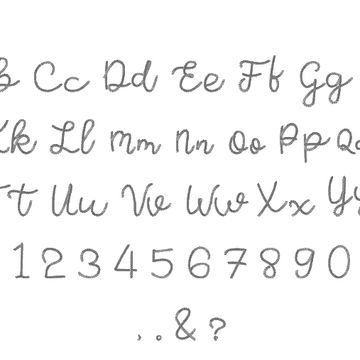 B Cc Dd Ee Ff Gg
Kk Ll Mm Nn Oo Pp Qq
Tt Uu Vv Ww Xx Yy
1 2 3 4 5 6 7 8 9 0
, . & ?